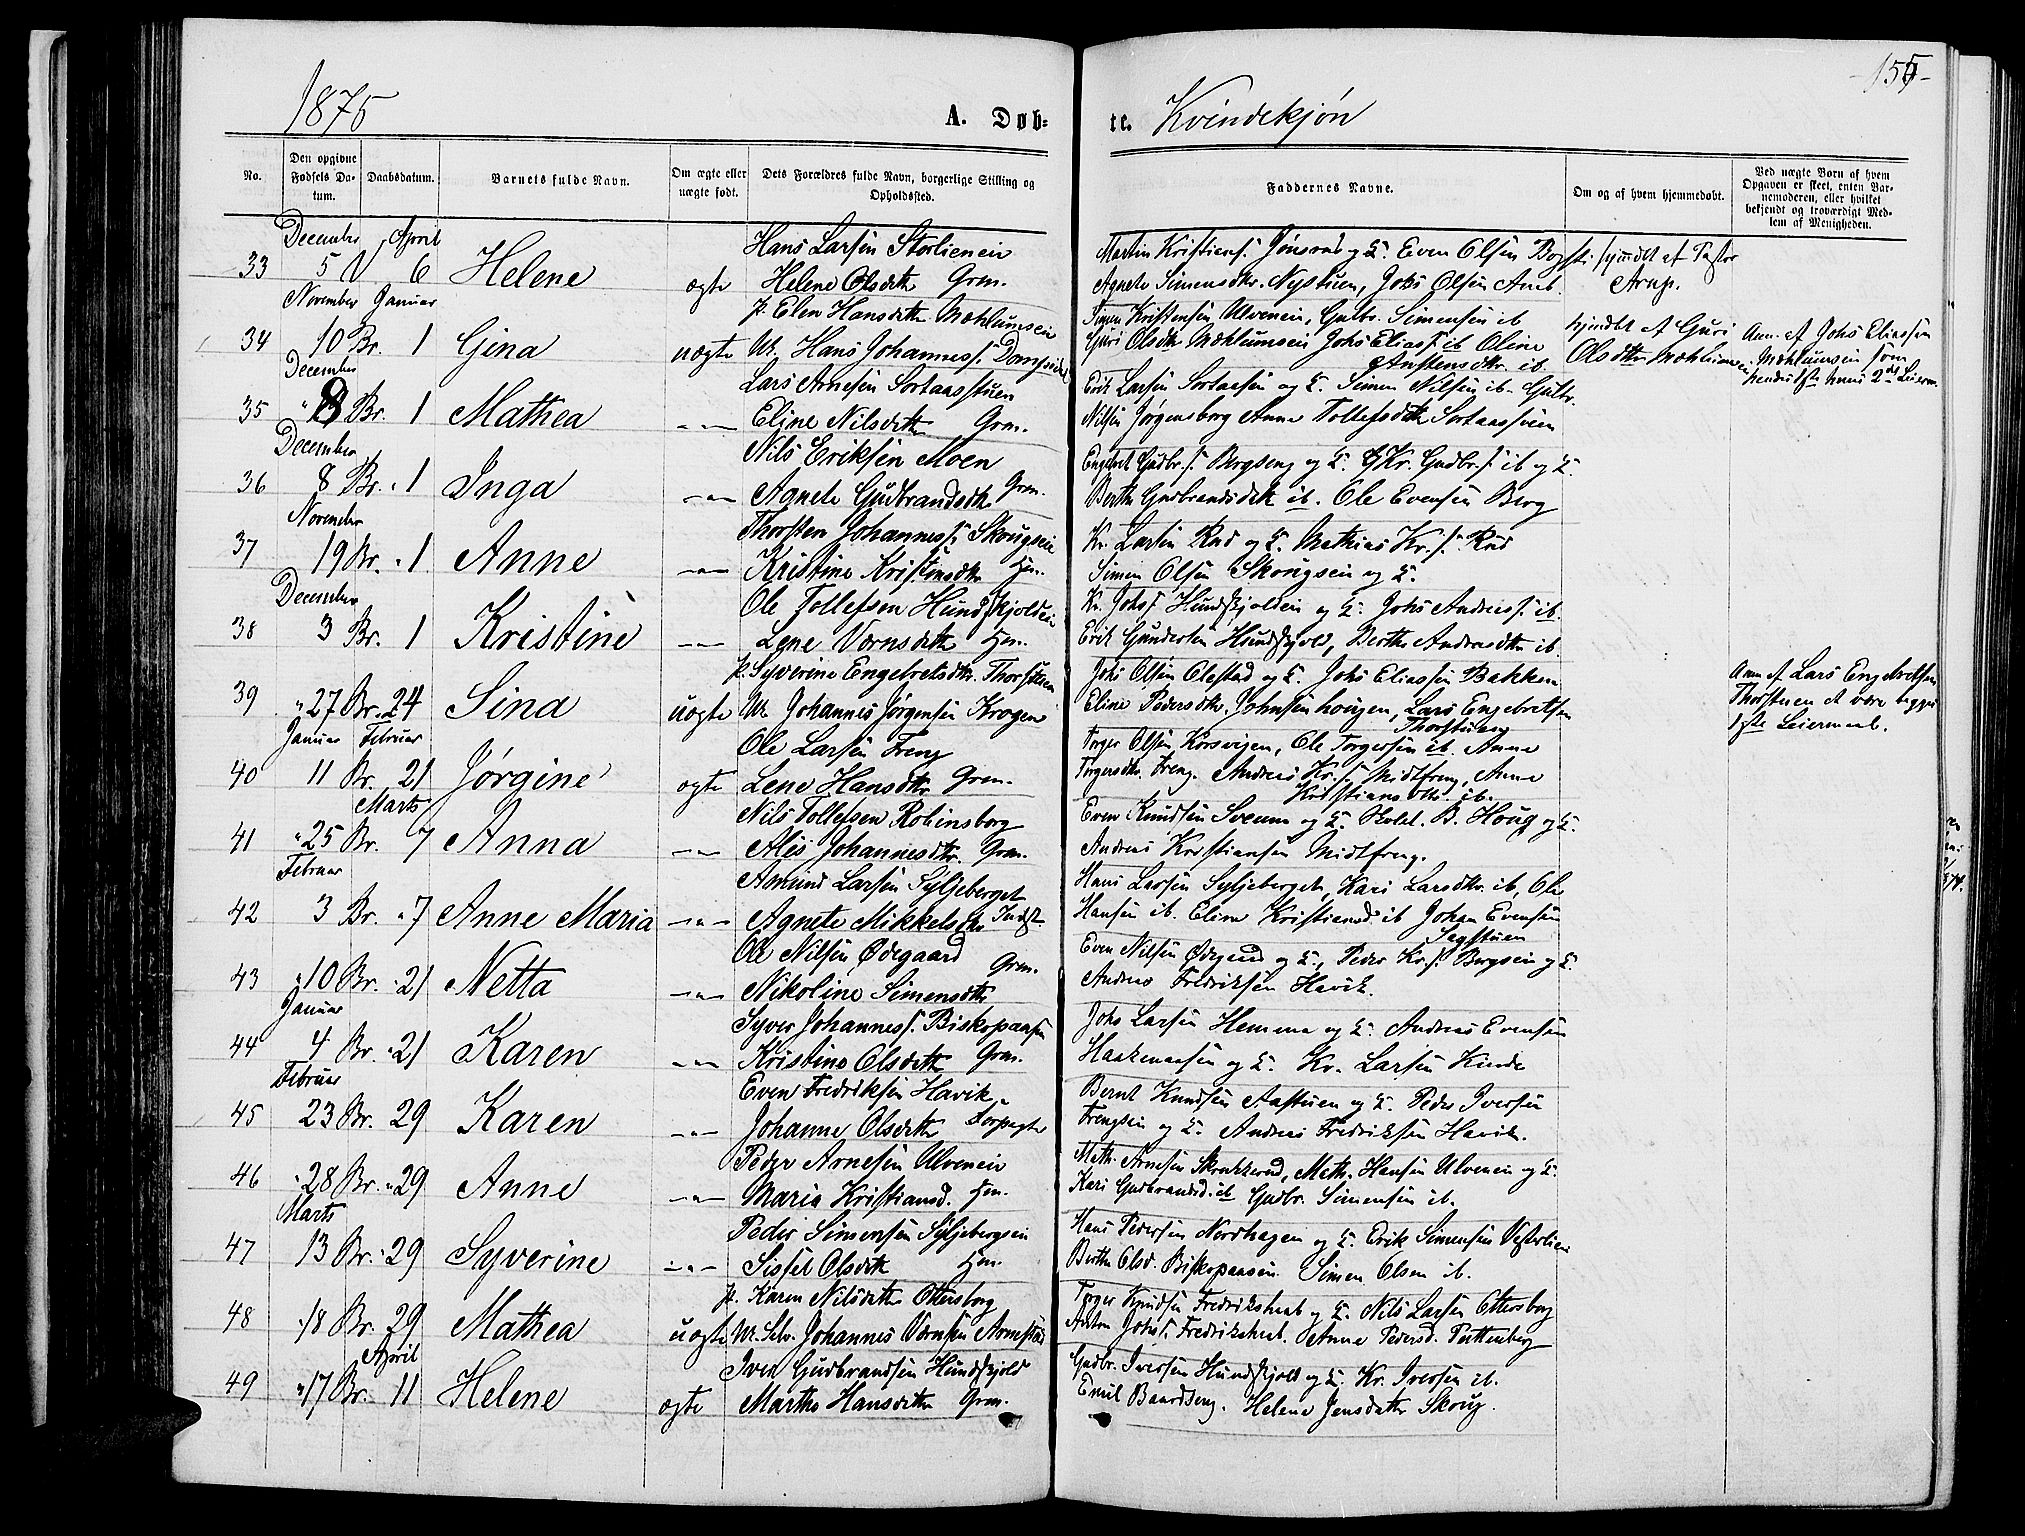 1875
A. Døb-
te. Kvindekjøn
-155-
No.
Den opgivne Fødsels Da-tum.
Daabsdatum.
Barnets fulde Navn.
Om ægte eller uægte født.
Dets Forældres fulde Navn, borgerlige Stilling og Opholdssted.
Faddernes Navne.
Om og af hvem hjemmedøbt.
Ved uægte Børn af hvem Opgaven er skeet, enten Bar-nemoderen, eller hvilket bekjendt og troværdigt Med-lem af Menigheden.
December April Hans Larsen Storlieneie
33 5 6 Helene ægte Helene Olsdtr Grm.
November Januar p. Elen Hansdttr Mæhlumseie
34 10 Br. 1 Gina uægte Uk. Hans Johanness.
December Lars Arnesen Sortaasstuen
35 8 Br. 1 Mathea -"- Eline Nilsdttr Grm.
December Nils Eriksen Moen
36 8 Br. 1 Inga -"- Agnete Gudbrandsdtr Grm.
November Thorsten Johanness. Skougseie
37 19 Br. 1 Anne -"- Kristine Kristensdtr
December Ole Tollefsen Hundskjoldeie
38 3 Br. 1 Kristine -"- Lene
p. Syverine Engebretsdtr. Thorstuen
39 "27 Br. 24 Sina uægte Uk. Johannes Jørgensen Krogen
Januar Februar Ole Larsen Freng
40 11 Br. 21 Jørgine ægte Lene Hansdtr Grm.
Marts Nils Tollefsen Robinsborg
41 "25 Br. 7 Anna -"- Alis Johannesdtr. Grm.
Februar Amund Larsen Syljeberget
42 3 Br. "7 Anne Maria -"- Agnete Mikkelsdtr Indst.
Ole Nilsen Ødegaard
43 "10 Br. "21 Netta -"- Nikoline Simensdtr Grm.
Januar Syver Johanness. Biskopaasen
44 4 Br. "21 Karen -"- Kristine Olsdttr Grm.
Februar Even Fredriksen Havik
45 23 Br. 29 Karen -"- Johanne Olsdttr Forpagter
Peder Arnesen Ulveneie
46 "28 Br. "29 Anne -"- Maria Kristiansd.
Marts Peder Simensen Syljebergseie
47 13 Br. "29 Syverine -"- Sissel Olsdtr
p. Karen Nilsdatter Ottersborg
48 "18 Br. 29 Mathea uægte Uk. Selv. Johannes
April Iver Gudbrandsen Hundskjold
49 "17 Br. 11 Helene ægte Marthe Hansdttr Grm.
Martin Kristians. Jønsrud og E. Even Olsen
Agnete Simensdtr. Nystuen, Johs Olsen
Simen Kristensen Ulveneie, Gulbr. Simensen ib
Guri Olsdtr Mæhlumseie Johs Elias s. ib Oline
Anstensdtr ib.
Erik Larsen Sortaasen og E. Simen Nilsen ib. Gulbr.
Nilsen Jørgensborg Anne Tollefsdtr Sortaassveen
Engebret Gudbr. s. Bergseng og E. Kr. Gudbr. s. ib og E.
Berthe Gudbrandsdtr ib. Ole Evensen Berg
Kr. Larsen Rud og E. Mathias Kr. s. Rud
Simen Olsen Skougseie og E.
Kr. Johs s. Hundskjoldeie og E. Johs Andreas s. ib.
Erik Gundersen Hundskjold, Berthe Andreasdtr ib.
Johs Olsen Olestad og E. Johs Eliassen Bakken
Eline Pedersdtr. Johnsenhougen, Lars Engebretsen
Thorstuen
Torger Olsen Korsvigen, Ole Torgersen ib. Anne
Torgersdtr. Freng. Andreas Kr. s. Midtfreng, Anne
Kristiansdtr. ib.
Even Knudsen Sveum og E. B. Houg og E.
Andreas Kristiansen Midtfreng.
Hans Larsen Syljeberget, Kari Larsdtr. ib, Ole
Hansen ib. Eline Kristiansd. ib Johan Evensen
Sagstuen
Even Nilsen Ødegaard og E., Peder Kr. s. Bergseie og E.
Andreas Fredriksen Havik.
Johs Larsen Hemma og E. Andreas Evensen
Haakenaasen og E. Kr. Larsen Kinde
Bernt Knudsen Aastuen og E. Peder Iversen
Frengseie og E. Andreas Fredriksen Havik.
Math. Arnesen Skrukkerud, Math. Hansen Ulveneie og E.
Kari Gudbrandsd. ib Gudbr. Simensen ib.
Hans Pedersen Nordhagen og E. Erik Simensen Vesterlien
Berthe Olsd. Biskopaasen Simen Olsen ib.
Torger Knudsen og E. Nils Larsen Ottersborg
Anton Johs s. Anne Pedersd. Puttenberg
Gudbr. Iversen Hundskjold og E. Kr. Iversen ib.
Emil Baardseng. Helene Jensdatter Skoug.
hjmdbt af Pastor
Arup.
hjmdbt af Guri
Olsdttr Mæhlumseie
Anm. af Johs Eliassen
Mæhlumseie som
hendes 1ste hans 2det Leierm.
Anm. af Lars Engebretsen
Thorstuen at være begges
1ste Leiermaal.